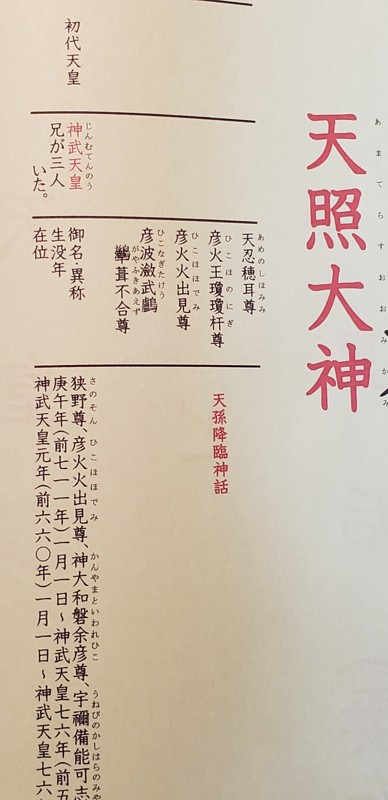 天照大神
あまてらすおおみかみ
天忍穂耳尊
あめのしほみみ
彦火王瓊瓊杵尊
ひこほのにぎ
彦火火出見尊
ひこほほでみ
彦波瀲武鸕
ひこなぎたけう
鷀葺不合尊
がやふきあえず
天孫降臨神話
初代天皇
神武天皇
じんむてんのう
兄が三人
いた。
御名・異称
生没年
在位
狭野尊、彦火火出見尊、神大和磐余彦尊、宇禰備能可志
さのそん ひこほほでみ かんやまといわれひこ うねびのかしはらのみや
庚午年(前七一一年)一月一日~神武天皇七六年(前五
神武天皇元年(前六六〇年)一月一日~神武天皇七六